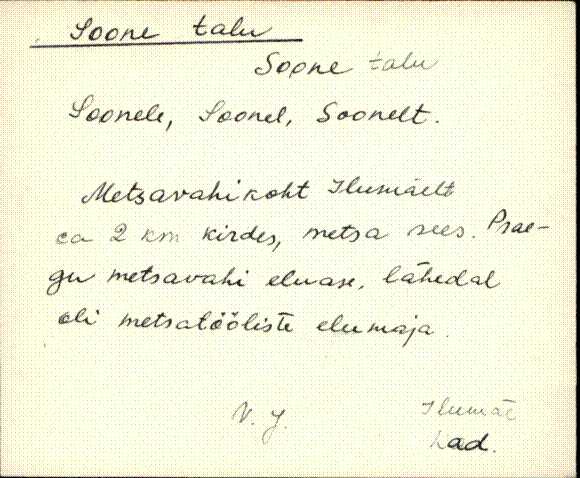 Soone talu
Soone talu
Soonele, Soonel, Soonelt.
Metsavahikoht Ilumäelt
ca 2 km kirdes, metsa sees. Prae-
gu metsavahi eluase, lähedal
oli metsatööliste elumaja.
V. J.
Ilumäe
Had.